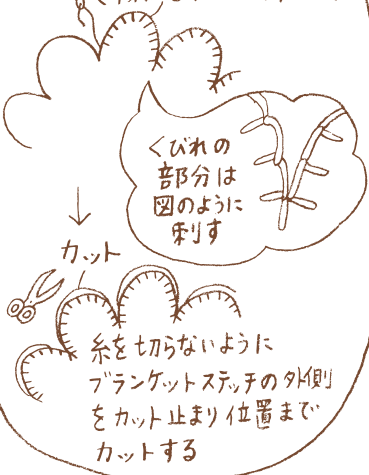 くびれの
部分は
図のように
刺す
カット
糸を切らないように
ブランケットステッチの外側
をカット止まり位置まで
カットする